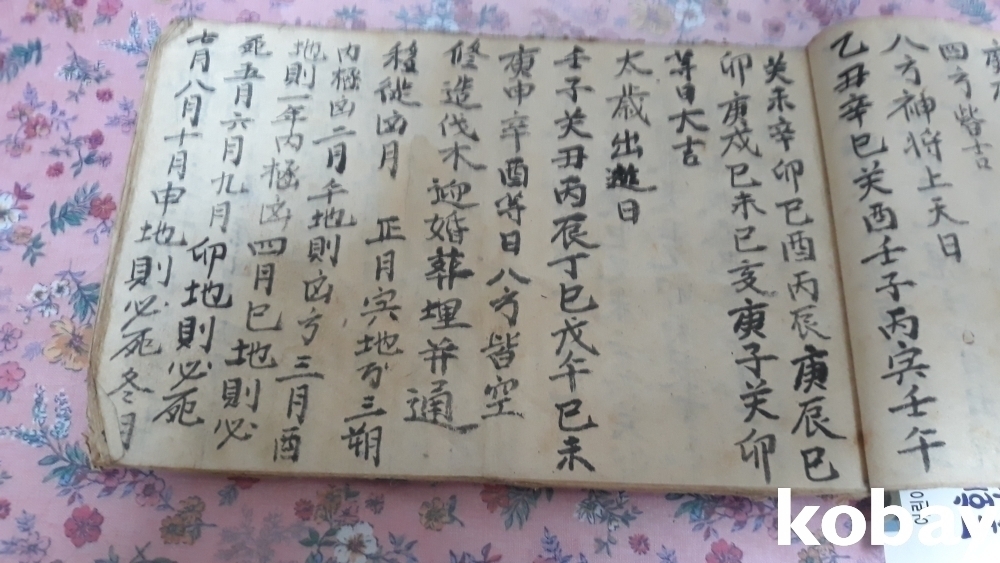 四方皆吉
八方神将上天日
乙丑辛巳关酉壬子丙寅壬午
关未辛卯巳酉丙辰庚辰巳
卯庚戌巳未巳亥庚子关卯
等日大吉
太歳出遊日
壬子关丑丙辰丁巳戊午巳未
庚申辛酉等日八方皆空
修造伐木迎婚葬埋并通
移徙凶月 正月寅地方三朔
内極凶二月午地則凶方三月酉
地則一年内極凶四月巳地則必
死五月六月九月卯地則必死
七月八月十月申地則必死冬月
koba